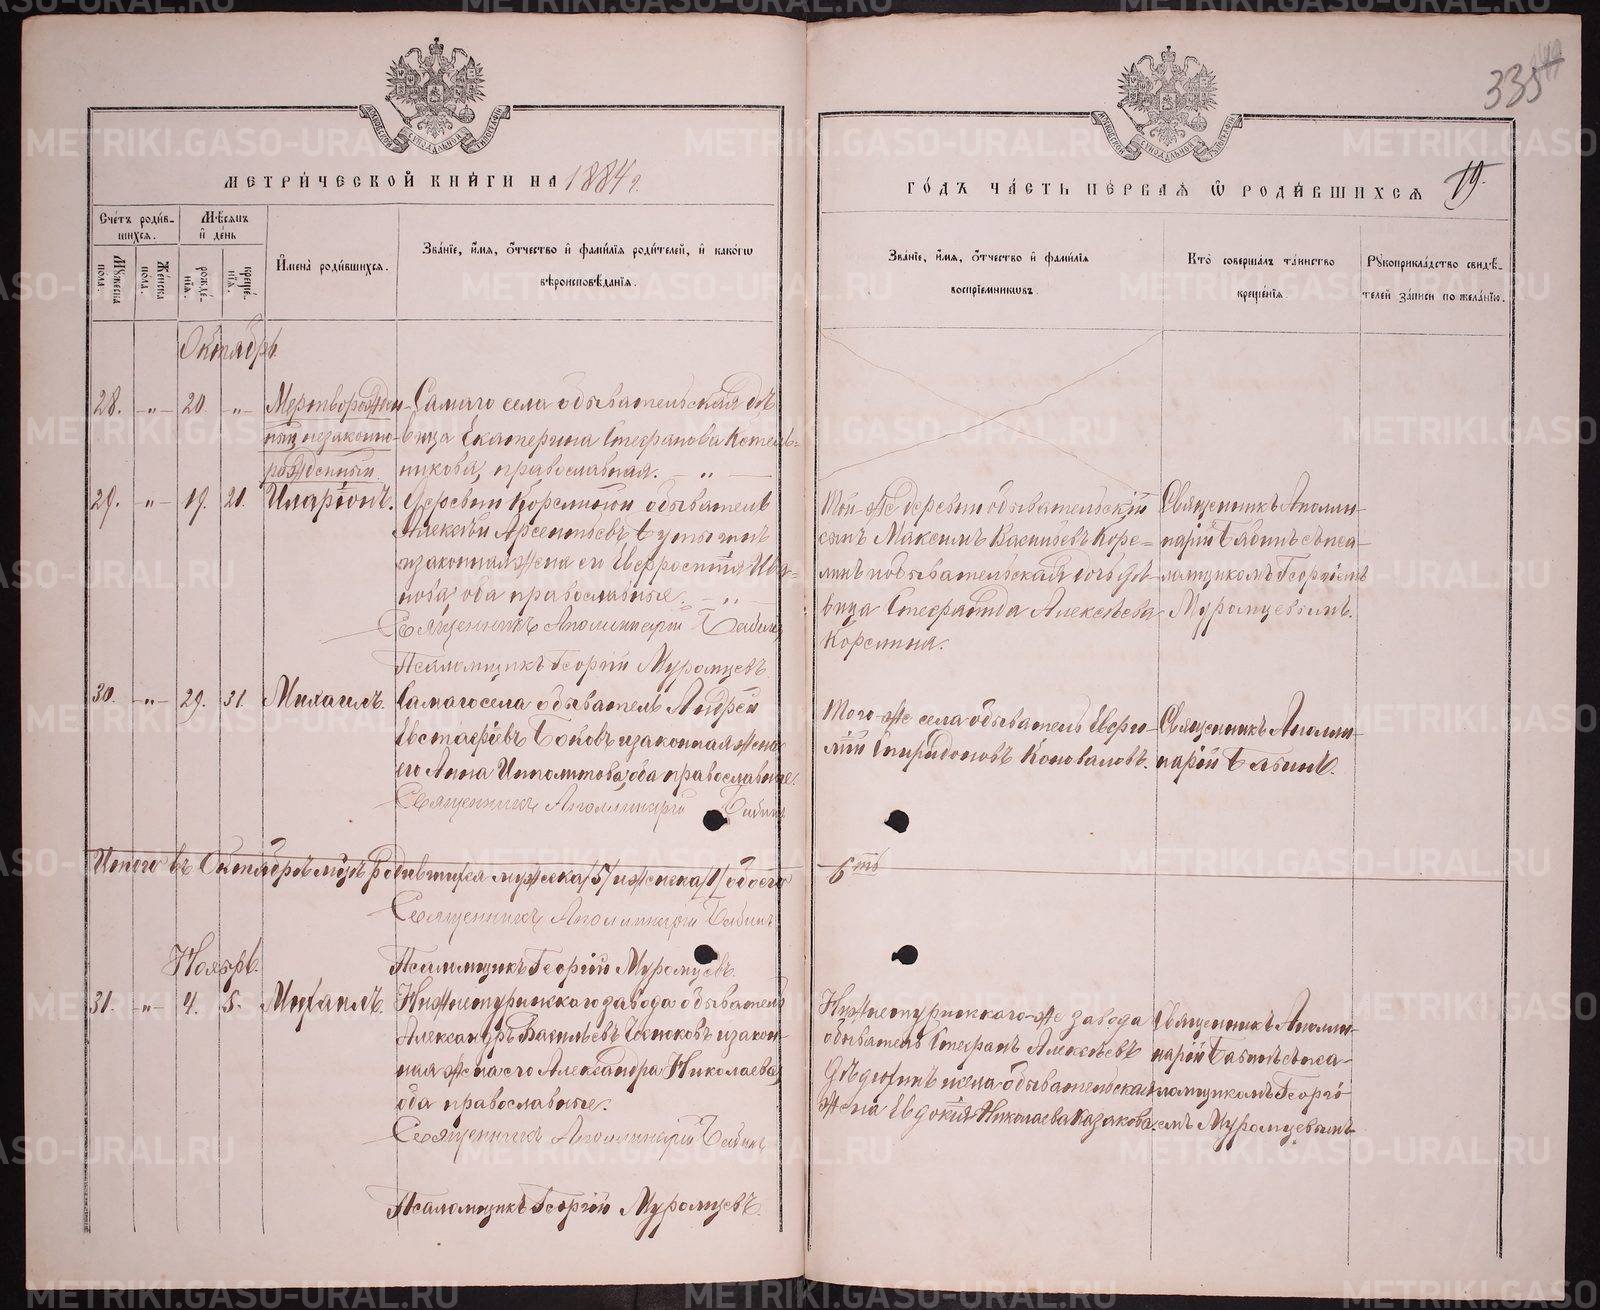 335
МЕТРИ́ЧЕСКОЙ КНИ́ГИ НА 1884 г.
ГО́ДЪ ЧА́СТЬ ПЕ́РВАЯ Ѿ РОДИ́ВШИХСЯ 19.
Сче́тъ роди́в-
шихся.
Мѣ́сяцъ
и де́нь
Му́жеска по́ла.
Же́нска по́ла.
рожде́-
нїя.
креще́-
нїя.
И҆мена̀ роди́вшихся.
Зва́нїе, и҆́мя, о҆́тчество и҆ фами́лїя роди́телей, и҆ како́гѡ
вѣроисповѣ́данїя.
Зва́нїе, и҆́мя, о҆́тчество и҆ фами́лїя
воспрїе́мникѡвъ.
Кто̀ соверша́лъ та́инство
креще́нїя.
Рꙋкоприкла́дство свидѣ́-
телей за́писи по жела́нїю.
Октябрь
28. -"- 20. -"- Мертворожден-
ный незаконно-
рожденный.
Самаго села обывательская дѣ-
вица Екатерина Стефанова Котель-
никова, православная. - " -
29. -"- 19. 21. Иларіонъ.
Деревни Корелиной обыватель
Алексѣй Арсентьевъ
и законная жена его Евфросинія Ива-
нова, оба православные. - " -
Священникъ Аполлинарій Бабинъ
Псаломщикъ Георгій Муромцевъ
Той-же деревни обывательскій
сынъ Максимъ Васильевъ Коре-
линъ и обывательская дочь дѣ-
вица Стефанида Алексѣева
Корелина.
Священникъ Аполли-
нарій Бабинъ съ пса-
ломщикомъ Георгіемъ
Муромцевымъ.
30. -"- 29. 31. Михаилъ.
Самаго села обыватель Андрей
Евстафіевъ Боковъ и законная жена
его Анна Ипполитова, оба православные.
Священникъ Аполлинарій Бабинъ
Того-же села обыватель
Спиридоновъ Коноваловъ.
Священникъ Аполли-
нарій Бабинъ.
Итого въ Октябрѣ мцѣ родившихся мужеска /5/ и женска /1/ обоего
6ть
Священникъ Аполлинарій Бабинъ
Псаломщикъ Георгій Муромцевъ.
Ноябрь.
31. -"- 4. 5. Михаилъ.
Нижнетуринскаго завода обыватель
Александръ Васильевъ и закон-
ная жена его Александра Николаева,
оба православные.
Священникъ Аполлинарій Бабинъ
Псаломщикъ Георгій Муромцевъ.
Нижнетуринскаго-же завода
обыватель Стефанъ Алексѣевъ
Дѣдюхинъ и села обывательская
жена Евдокія Николаева Казакова.
Священникъ Аполли-
нарій Бабинъ съ пса-
ломщикомъ Георгі-
емъ Муромцевымъ
METRIKI.GASO-URAL.RU